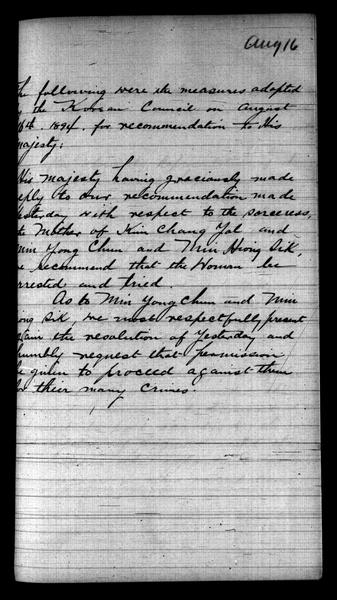 Aug 16
The following were the measures adopted
by the Korean Council on August
16th. 1894. for recommendation to His
Majesty:
His majesty having graciously made
reply to our recommendation made
yesterday with respect to the sorceress,
the Mother of Kim Chang Yol and
Min Yong Chun and Min Hiong Sik,
we recommend that the Woman be
arrested and tried.
As to Min Yong Chun and Min
Hiong Sik, we most respectfully present
again the resolution of Yesterday and
humbly request that permission
be given to proceed against them
for their many Crimes.